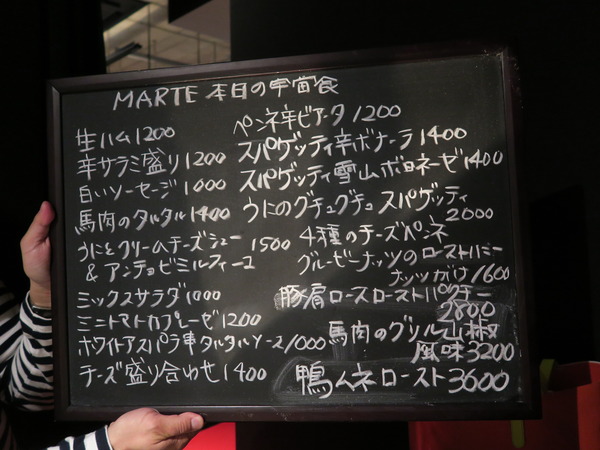 MARTE 本日の宇宙食
生ハム 1200
辛サラミ盛り 1200
白いソーセージ 1000
馬肉のタルタル 1400
うにとクリームチーズシュー 1500
& アンチョビミルフィーユ
ミックスサラダ 1000
ミニトマトカプレーゼ 1200
ホワイトアスパラ 車タルタルソース 1000
チーズ盛り合わせ 1400
ペンネ辛ビアータ 1200
スパゲッティ辛ボナーラ 1400
スパゲッティ雪山ボロネーゼ 1400
うにのグチュグチュスパゲッティ
2000
4種のチーズペンネ
グルービーナッツのローストハニー
ナッツがけ 1600
豚肩ロースロースト
2800
馬肉のグリル山椒
風味 3200
鴨ムネロースト 3600